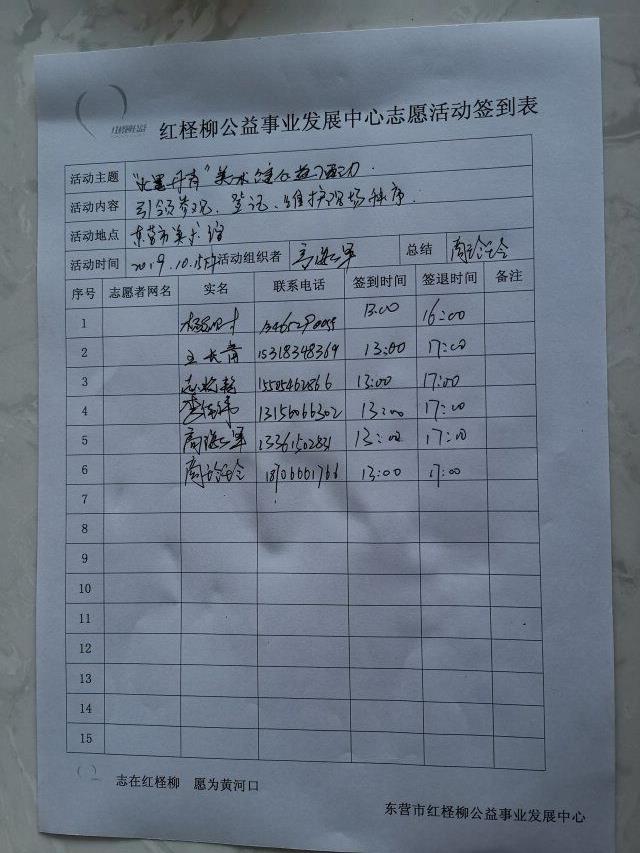 红柽柳公益事业发展中心志愿活动签到表
活动主题 "水墨丹青"美术馆公益活动.
活动内容 引领参观、登记、维护现场秩序.
活动地点 东营市美术馆
活动时间 2019.10.5日 活动组织者 总结
序号 志愿者网名 实名 联系电话 签到时间 签退时间 备注
1 13:00 16:00
2 王长青 15318348369 13:00 17:00
3 15505462866 13:00 17:00
4 13156066302 13:00 17:00
5 13361502831 13:00 17:00
6 18706661766 13:00 17:00
7
8
9
10
11
12
13
14
15
志在红柽柳 愿为黄河口
东营市红柽柳公益事业发展中心